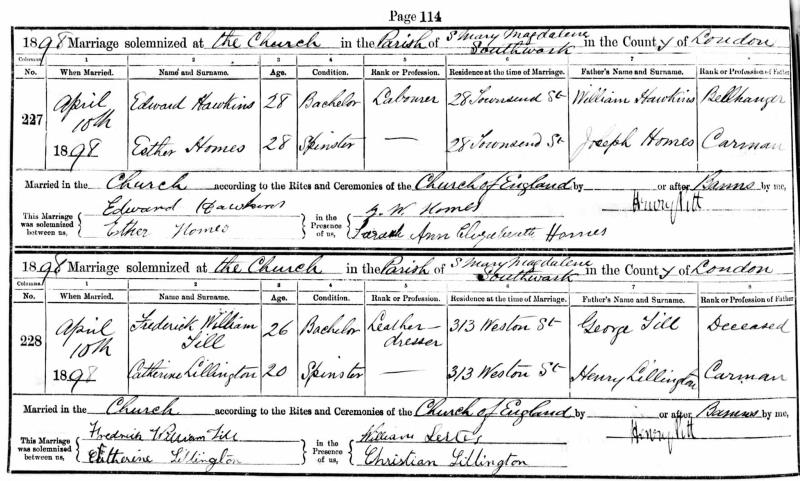 Page 114
1898 Marriage solemnized at the Church in the Parish of S Mary Magdalene Southwark in the County of London
Columns 1 2 3 4 5 6 7 8
No. When Married. Name and Surname. Age. Condition. Rank or Profession. Residence at the time of Marriage. Father's Name and Surname. Rank or Profession of Father
227 April 10th 1898 Edward Hawkins 28 Bachelor Labourer 28 Townsend St William Hawkins Bellhanger
Esther Homes 28 Spinster — 28 Townsend St Joseph Homes Carman
Married in the Church according to the Rites and Ceremonies of the Church of England by or after Banns by me,
This Marriage was solemnized between us, Edward Hawkins in the Presence of us, W Homes Henry
Esther Homes Sarah Ann Elizabeth Homes
1898 Marriage solemnized at the Church in the Parish of S Mary Magdalene Southwark in the County of London
Columns 1 2 3 4 5 6 7 8
No. When Married. Name and Surname. Age. Condition. Rank or Profession. Residence at the time of Marriage. Father's Name and Surname. Rank or Profession of Father
228 April 10th 1898 Frederick William Till 26 Bachelor Leather-dresser 313 Weston St George Till Deceased
Catherine Lillington 20 Spinster — 313 Weston St Henry Lillington Carman
Married in the Church according to the Rites and Ceremonies of the Church of England by or after Banns by me,
This Marriage was solemnized between us, Fredrick William Till in the Presence of us, William Henry
Catherine Lillington Christian Lillington